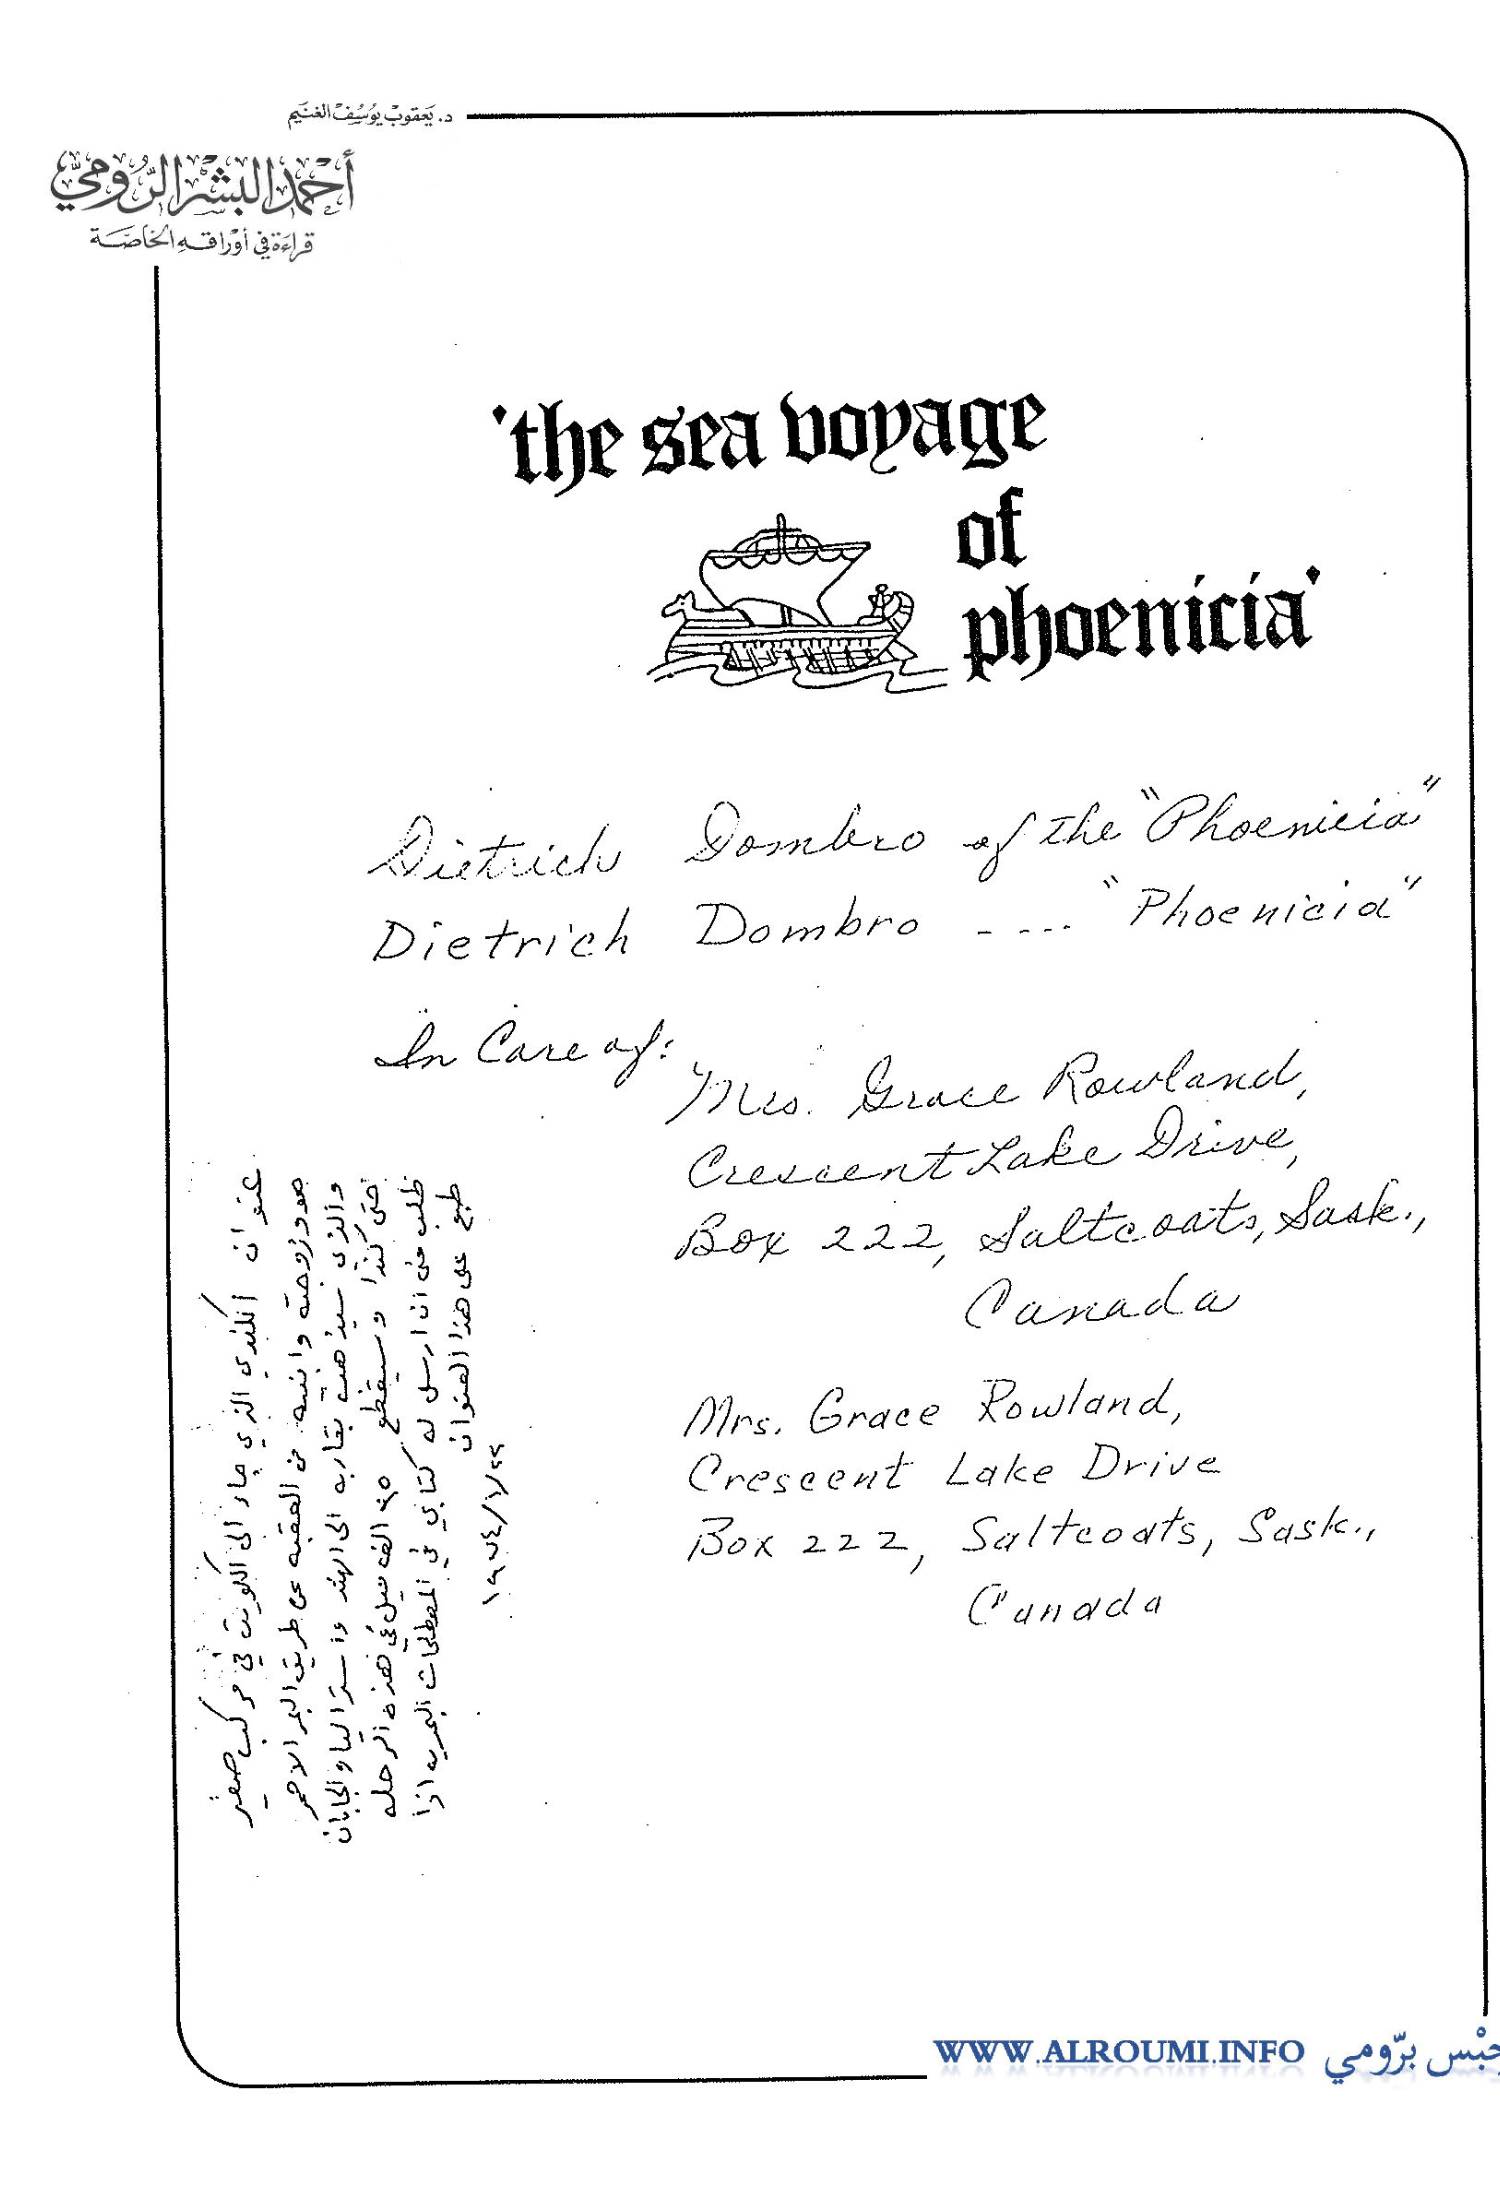 د. يعقوب يوسف الغنيم
أحمد البشر الرومي
قراءة في أوراقه الخاصة
'the sea voyage
of
phoenicia'
Dietrich Dombro of the "Phoenicia"
Dietrich Dombro - .... "Phoenicia"
In Care of:
Mrs. Grace Rowland,
Crescent Lake Drive,
Box 222, Saltcoats, Sask.,
Canada
Mrs. Grace Rowland,
Crescent Lake Drive
Box 222, Saltcoats, Sask.,
Canada
عنوان الكندي الذي جاء الى الكويت في مركب صغير
هو وزوجته وابنته من العقبه عن طريق البحر الاحمر
والذي سيذهب بقاربه الى الهند واستراليا واليابان
حتى كندا وسيقطع ٢٥ الف ميل في هذه الرحله
طلب مني ان ارسل له كتابي في المصطلحات البحريه اذا
طبع على هذا العنوان
١٩٧٤/١/٢٢
WWW.ALROUMI.INFO برّومي